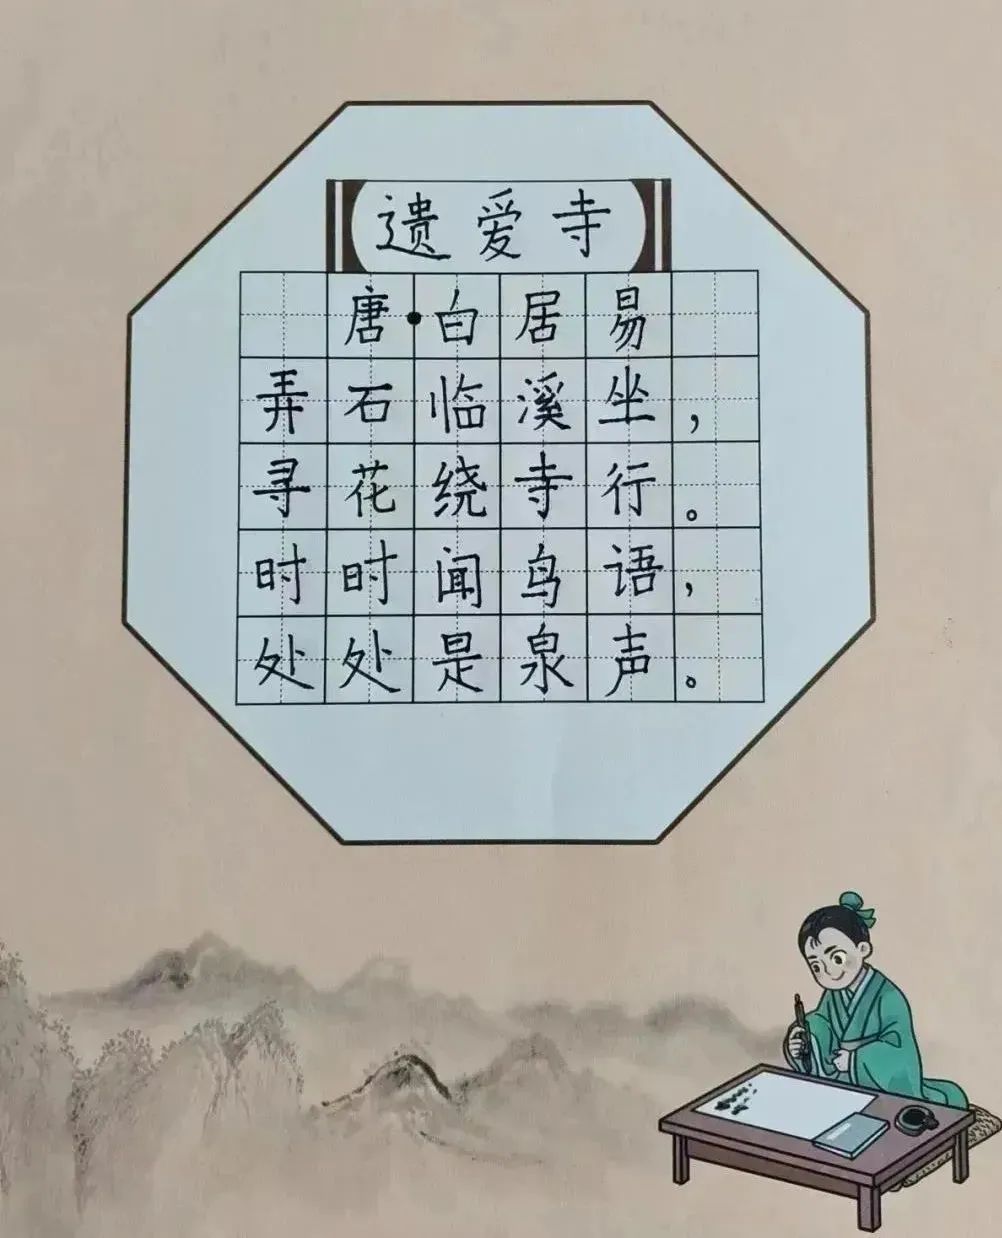 遗爱寺
唐·白居易
弄石临溪坐，
寻花绕寺行。
时时闻鸟语，
处处是泉声。